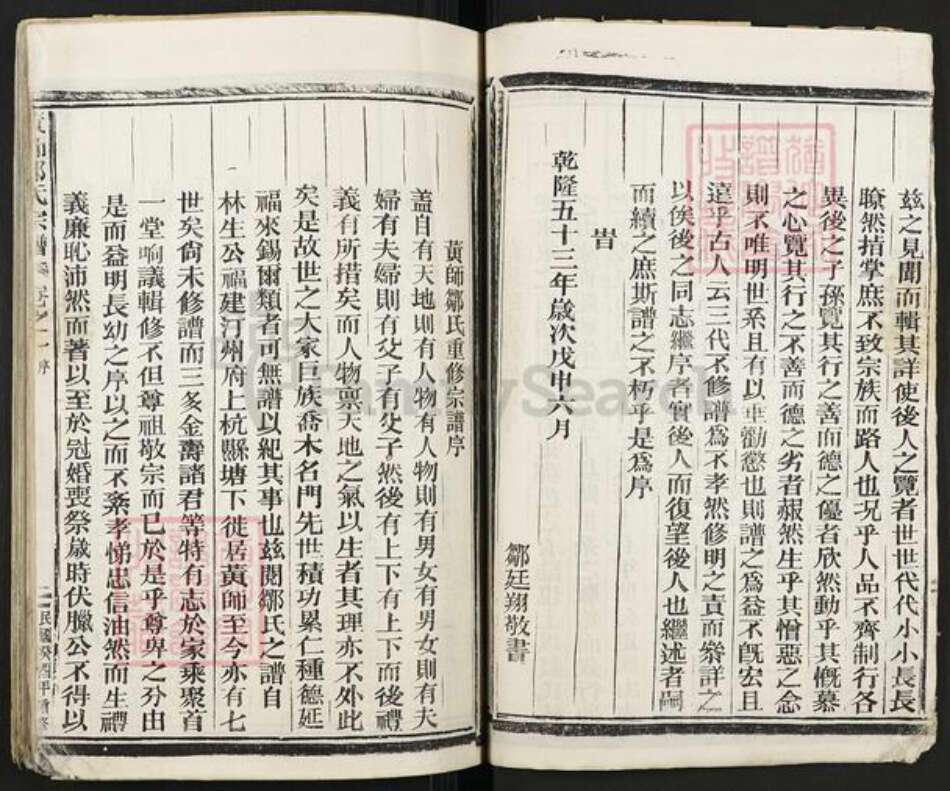 茲之見聞而輯其詳使後人之覽者世世代代小小長長
瞭然指掌庶不致宗族而路人也况乎人品不齊制行各
異後之子孫覽其行之善而德之優者欣然動乎其慨慕
之心覽其行之不善而德之劣者赧然生乎其憎惡之念
則不唯明世系且有以垂勸懲也則譜之爲益不旣宏且
遠乎古人云三代不修譜爲不孝然修明之責而叅詳之
以俟後之同志繼序者實後人而復望後人也繼述者嗣
而續之庶斯譜之不朽乎是爲序
旹
乾隆五十三年歲次戊申六月
鄒廷翔敬書
黃師鄒氏重修宗譜序
蓋自有天地則有人物有人物則有男女有男女則有夫
婦有夫婦則有父子有父子然後有上下有上下而後禮
義有所措矣而人物禀天地之氣以生者其理亦不外此
矣是故世之大家巨族喬木名門先世積功累仁種德延
福來錫爾類者可無譜以紀其事也茲閱鄒氏之譜自
林生公福建汀州府上杭縣塘下徙居黃師至今亦有七
世矣尙未修譜而三炙金壽諸君等特有志於家乘聚首
一堂晌議輯修不但尊祖敬宗而已於是乎尊卑之分由
是而益明長幼之序以之而不紊孝悌忠信油然而生禮
義廉恥沛然而著以至於冠婚喪祭歲時伏臘公不得以
師鄒氏宗譜 卷之一 序
二 民國癸酉年續修
FamilySearch